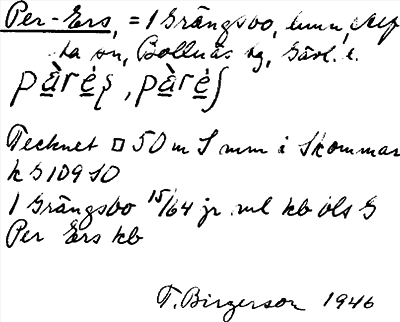 Per-Ers, = 1 Grängsbo, hmn, Alf
ta sn, Bollnäs tg, Gävl. l.
pàrės, pàrės
Tecknet □ 50 m S mm i Skommar
k S 109 SO
1 Grängsbo 15/64 jr ml kb öls G
Per Ers kb
T. Birgerson 1946